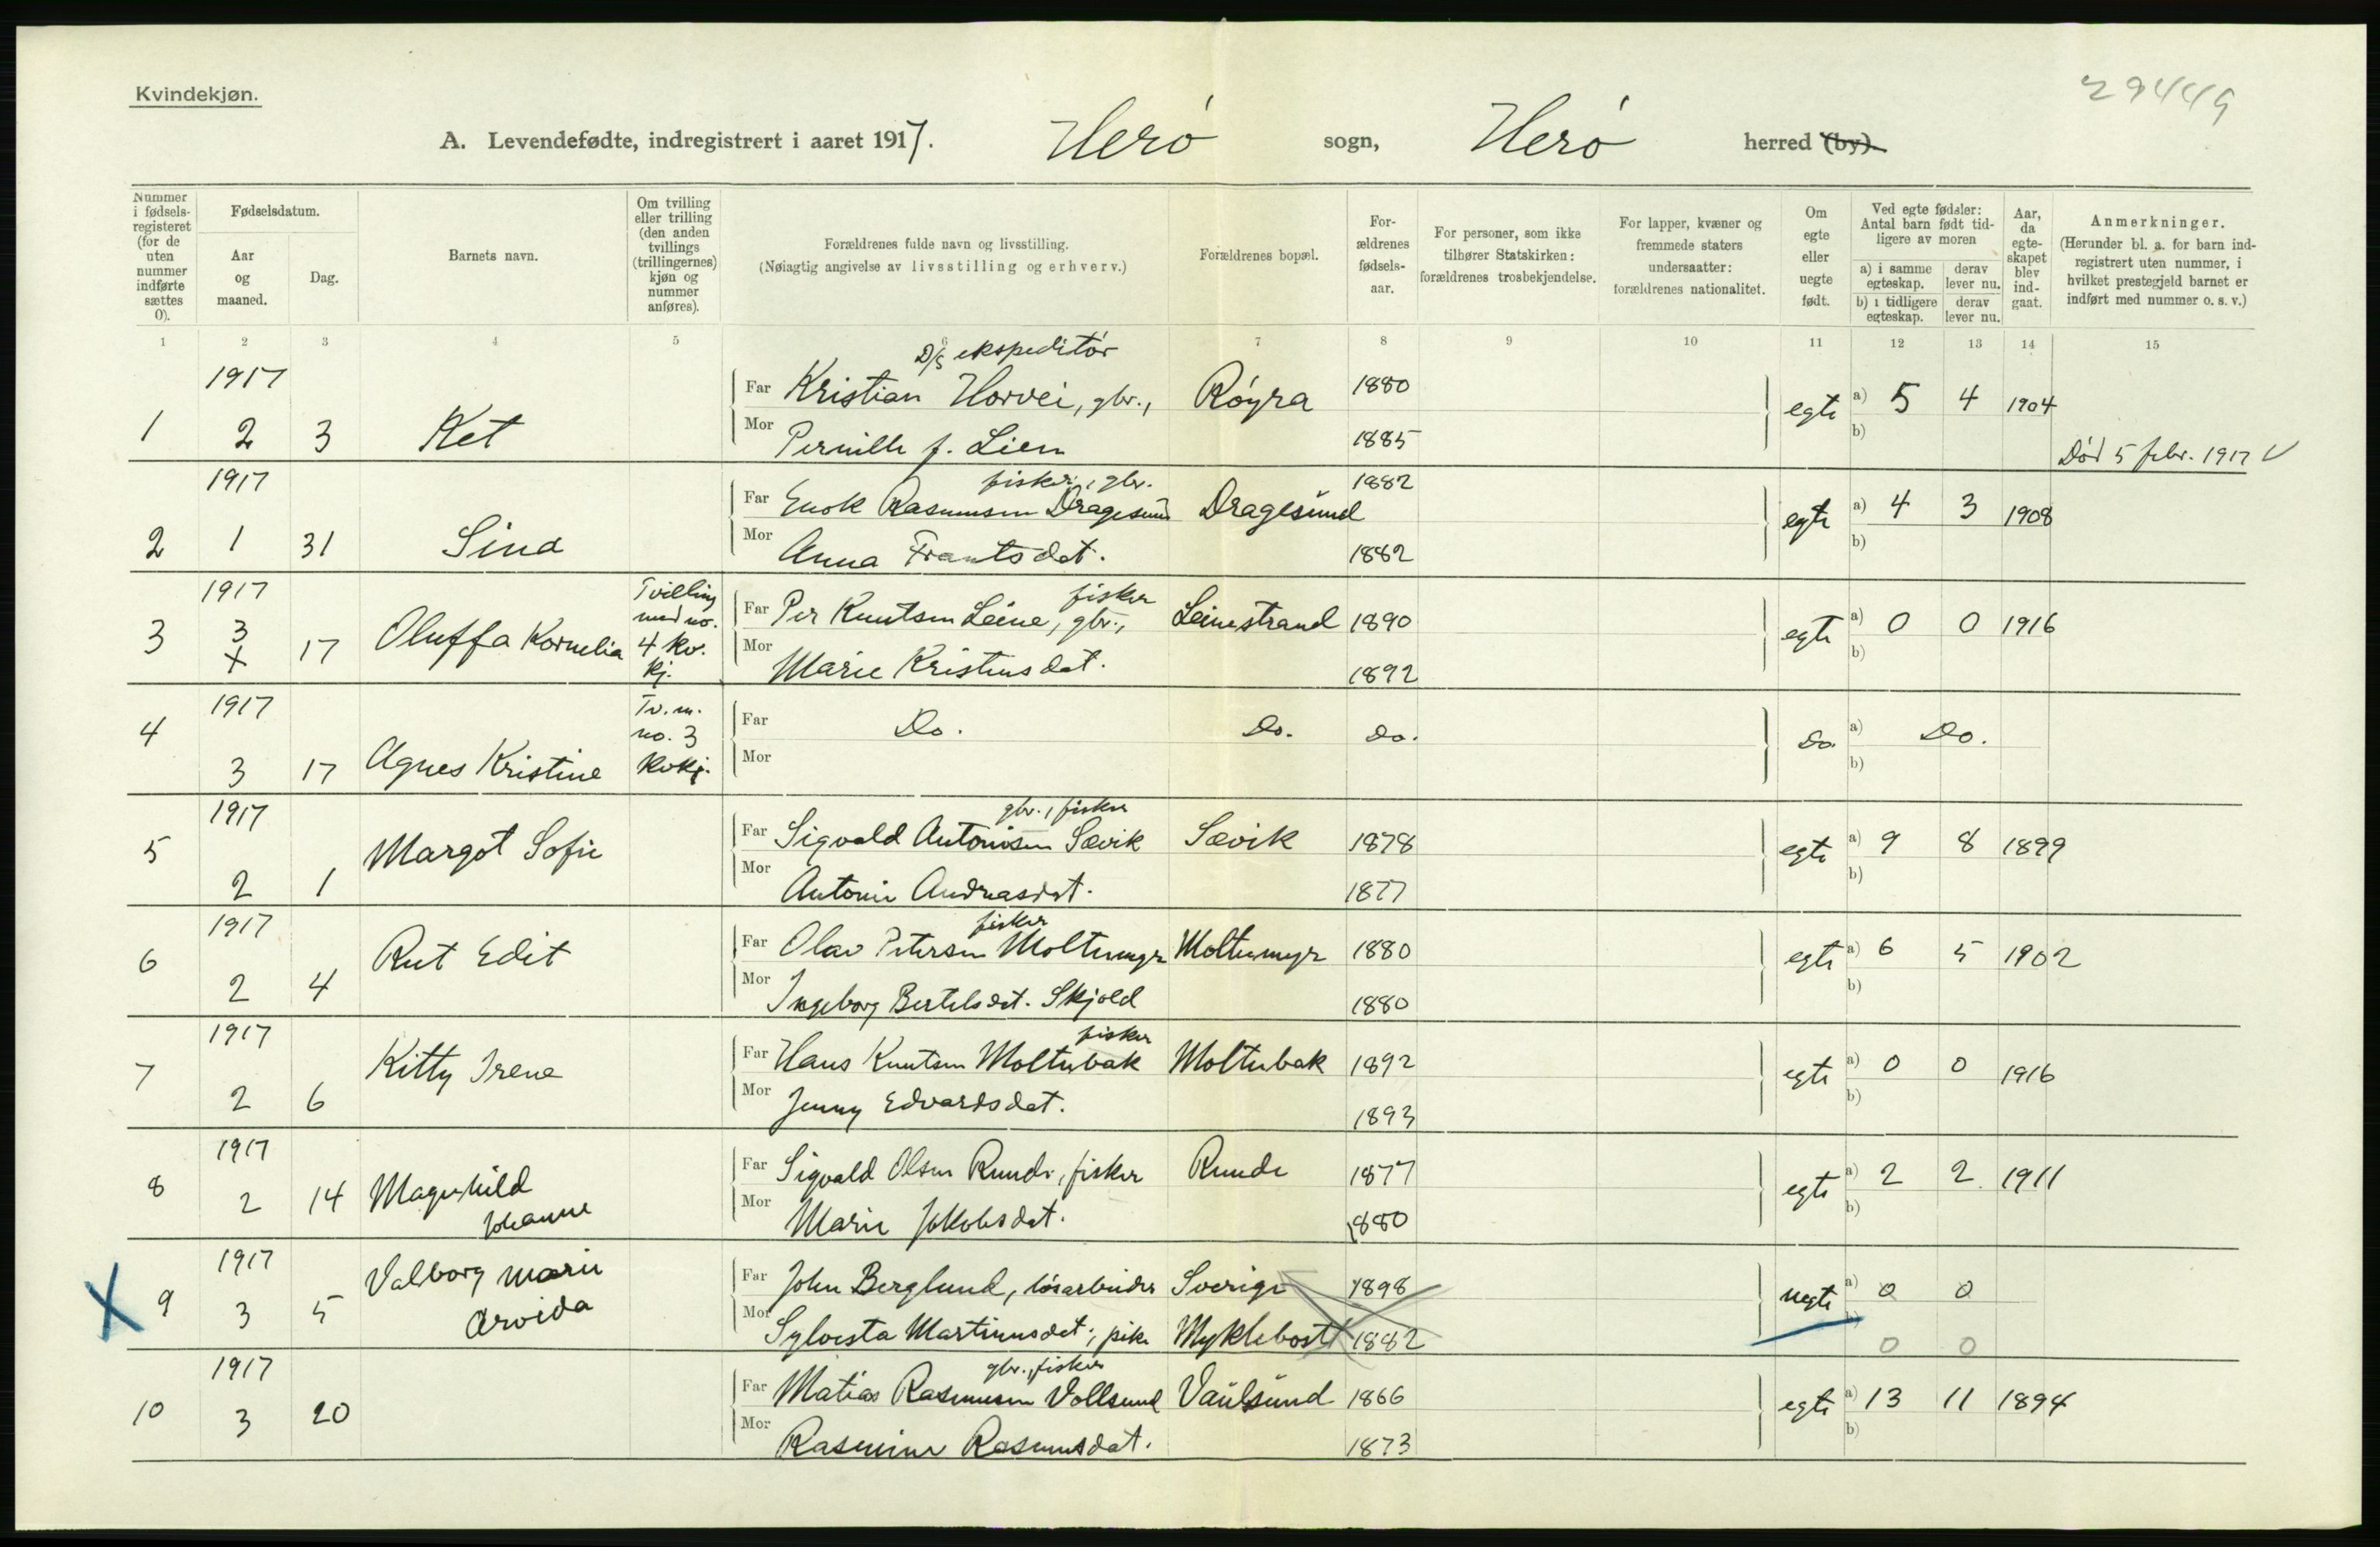 Kvindekjøn.
29449
A. Levendefødte, indregistrert i aaret 1917. Herø sogn, Herø herred (by).
Nummer i fødselsregisteret (for de uten nummer indførte sættes 0).
Fødselsdatum.
Aar og maaned.
Dag.
Barnets navn.
Om tvilling eller trilling (den anden tvillings (trillingernes) kjøn og nummer anføres).
Forældrenes fulde navn og livsstilling.
(Nøiagtig angivelse av livsstilling og erhverv.)
Forældrenes bopæl.
Forældrenes fødselsaar.
For personer, som ikke tilhører Statskirken: forældrenes trosbekjendelse.
For lapper, kvæner og fremmede staters undersaatter: forældrenes nationalitet.
Om egte eller uegte født.
Ved egte fødsler: Antal barn født tidligere av moren
a) i samme egteskap. derav lever nu.
b) i tidligere egteskap. derav lever nu.
Aar, da egteskapet blev indgaat.
Anmerkninger.
(Herunder bl. a. for barn indregistrert uten nummer, i hvilket prestegjeld barnet er indført med nummer o. s. v.)
1 2 3 4 5 6 7 8 9 10 11 12 13 14 15
D/S ekspeditør
1917 Far Kristian Horvei, gbr., Røyra 1880 egte a) 5 4 1904
1 2 3 Ket Mor Pernille f. Lien 1885 b) Død 5 febr. 1917
fisker, gbr.
1917 Far Enok Rasmussen Dragesund Dragesund 1882 egte a) 4 3 1908
2 1 31 Sina Mor Anna Frantsdat. 1882 b)
fisker
1917 Tvilling med no. 4 kv. kj. Far Per Knutsen Leine, gbr., Leinestrand 1890 egte a) 0 0 1916
3 3 17 Oluffa Kornelia Mor Marie Kristensdat. 1892 b)
1917 Tv. m. no. 3 kvkj. Far Do. Do. Do. Do. a) Do.
4 3 17 Agnes Kristine Mor b)
gbr., fisker
1917 Far Sigvald Antonisen Sævik Sævik 1878 egte a) 9 8 1899
5 2 1 Margot Sofie Mor Antonie Andreasdat. 1877 b)
fisker
1917 Far Olav Petersen Moltumyr Moltumyr 1880 egte a) 6 5 1902
6 2 4 Rut Edit Mor Ingeborg Bertelsdat. Skjold 1880 b)
fisker
1917 Far Hans Knutsen Moltubak Moltubak 1892 egte a) 0 0 1916
7 2 6 Kitty Irene Mor Jenny Edvardsdat. 1893 b)
1917 Far Sigvald Olsen Runde, fisker Runde 1877 egte a) 2 2 1911
8 2 14 Magnhild Johanne Mor Marie Jakobsdat. 1880 b)
1917 Far John Berglund, løsarbeider Sverige 1898 uegte a) 0 0
X 9 3 5 Valborg Marie Arvida Mor Sylvesta Martinusdat., pike Myklebost 1882 b) 0 0
gbr., fisker
1917 Far Matias Rasmussen Vollsund Vaulsund 1866 egte a) 13 11 1894
10 3 20 Mor Rasmine Rasmusdat. 1873 b)